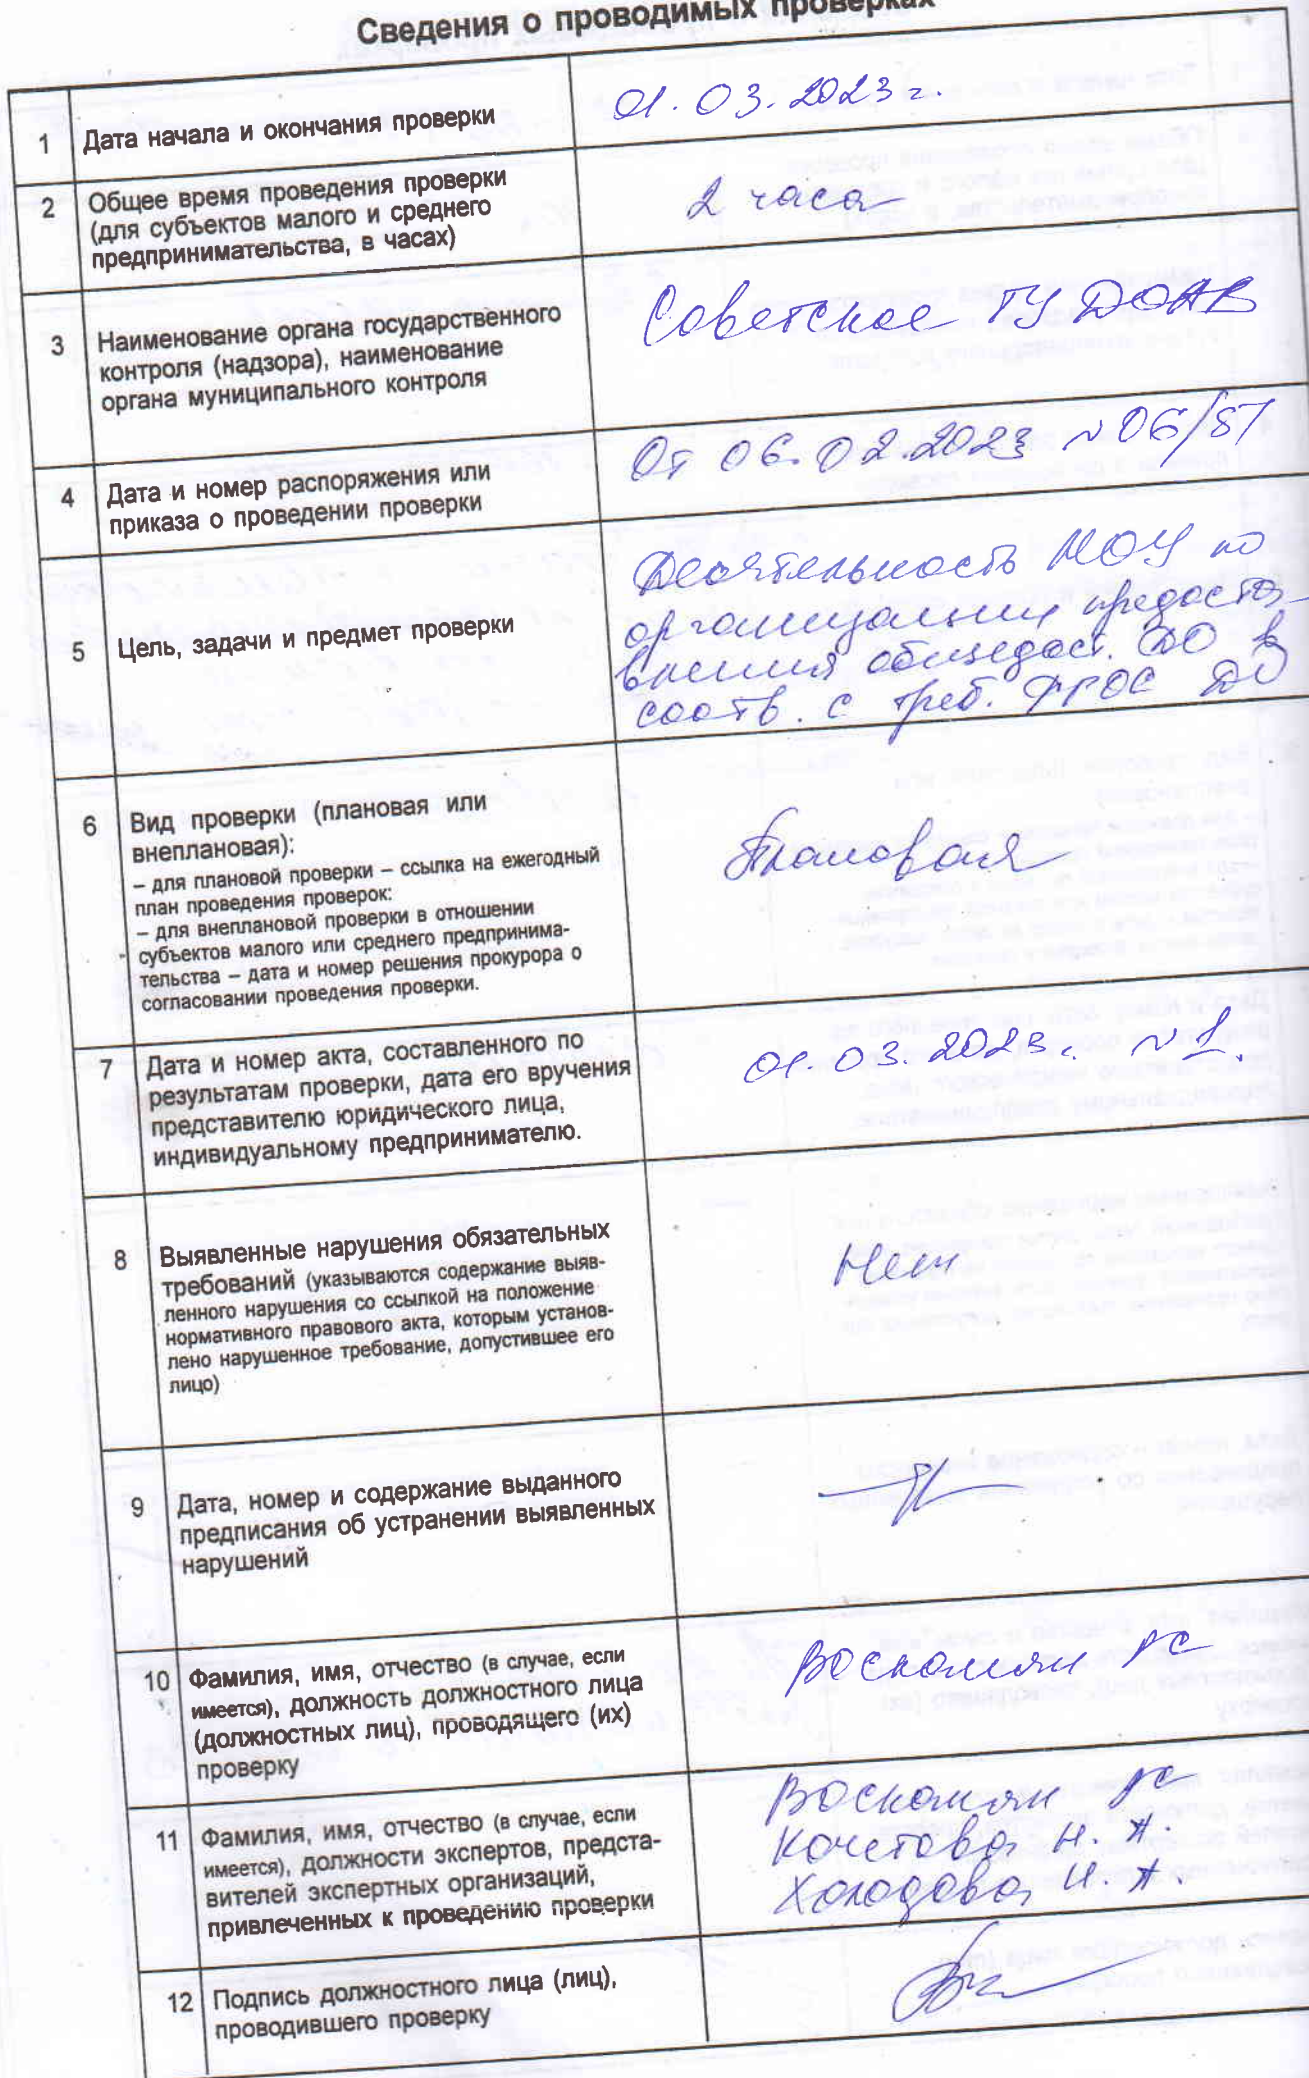 Сведения о проводимых проверках
1 Дата начала и окончания проверки
01.03.2023 г.
2 Общее время проведения проверки
(для субъектов малого и среднего
предпринимательства, в часах)
2 часа
3 Наименование органа государственного
контроля (надзора), наименование
органа муниципального контроля
Советское ТУ ДОАВ
4 Дата и номер распоряжения или
приказа о проведении проверки
От 06.02.2023 №06/81
5 Цель, задачи и предмет проверки
Деятельность МОУ по
организации предостав-
вления общедост. ДО в
соотв. с треб. ФГОС ДО
6 Вид проверки (плановая или
внеплановая):
– для плановой проверки – ссылка на ежегодный
план проведения проверок:
– для внеплановой проверки в отношении
субъектов малого или среднего предпринима-
тельства – дата и номер решения прокурора о
согласовании проведения проверки.
Плановая
7 Дата и номер акта, составленного по
результатам проверки, дата его вручения
представителю юридического лица,
индивидуальному предпринимателю.
01.03.2023г. №1.
8 Выявленные нарушения обязательных
требований (указываются содержание выяв-
ленного нарушения со ссылкой на положение
нормативного правового акта, которым установ-
лено нарушенное требование, допустившее его
лицо)
Нет
9 Дата, номер и содержание выданного
предписания об устранении выявленных
нарушений
10 Фамилия, имя, отчество (в случае, если
имеется), должность должностного лица
(должностных лиц), проводящего (их)
проверку
Воскомян РС
11 Фамилия, имя, отчество (в случае, если
имеется), должности экспертов, предста-
вителей экспертных организаций,
привлеченных к проведению проверки
Воскомян РС
Кочетова Н. А.
Холодова И. А.
12 Подпись должностного лица (лиц),
проводившего проверку